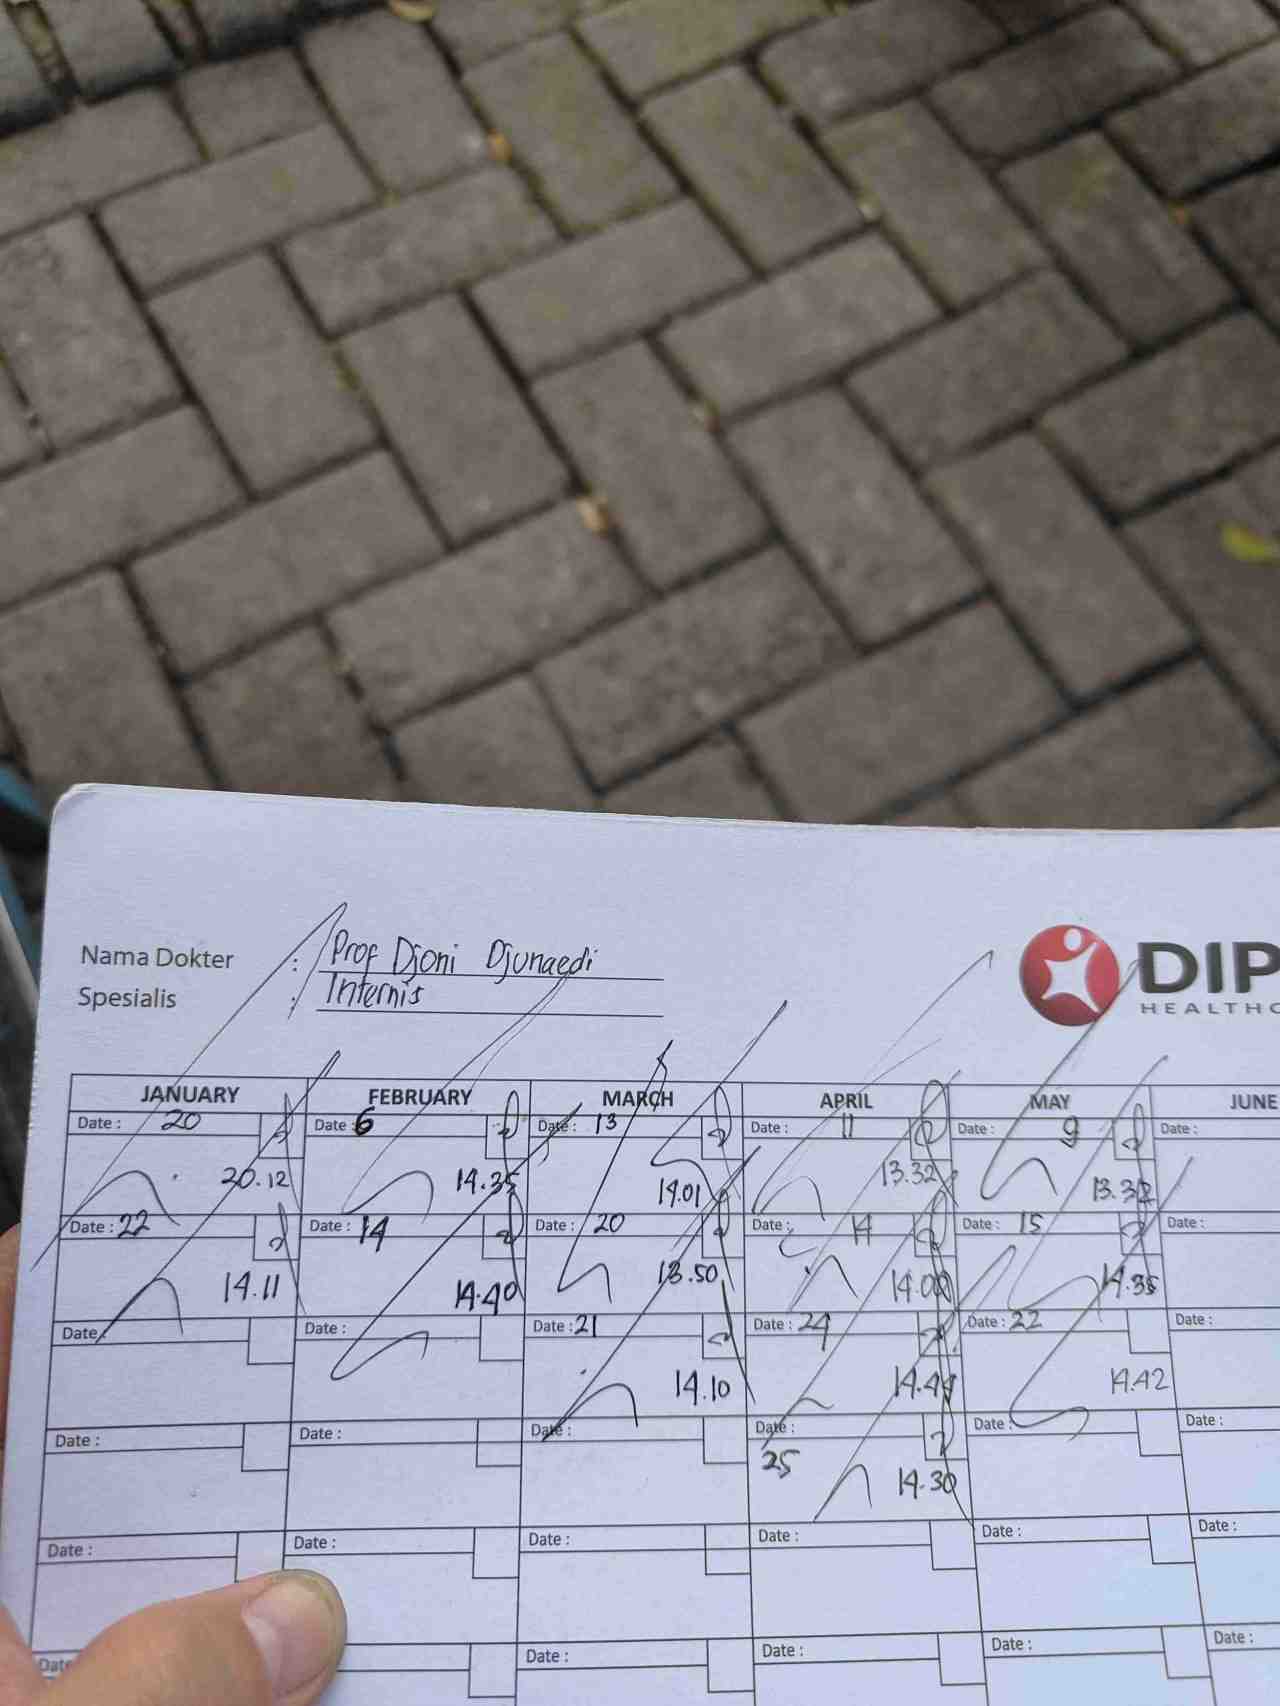 Nama Dokter : Prof Djoni Djunaedi
Spesialis : Internis
DIP
HEALTHC
JANUARY FEBRUARY MARCH APRIL MAY JUNE
Date : 20 Date : 6 Date : 13 Date : 11 Date : 9 Date :
20.12 14.35 14.01 13.32 13.32
Date : 22 Date : 14 Date : 20 Date : 14 Date : 15 Date :
14.11 14.40 13.50 14.00 14.35
Date Date : Date : 21 Date : 24 Date : 22 Date :
14.10 14.44 14.42
Date : Date : Date : Date : Date : Date :
25
14.30
Date : Date : Date : Date : Date : Date :
Date : Date : Date : Date :